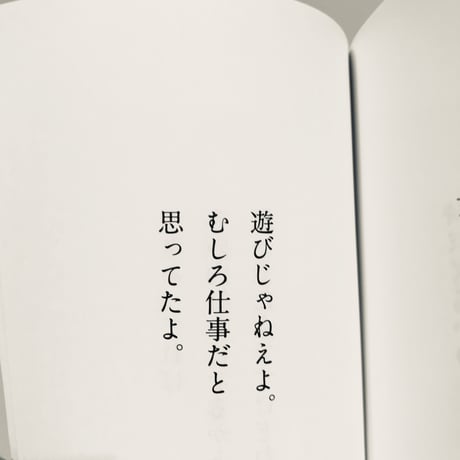 遊びじゃねえよ。
むしろ仕事だと
思ってたよ。